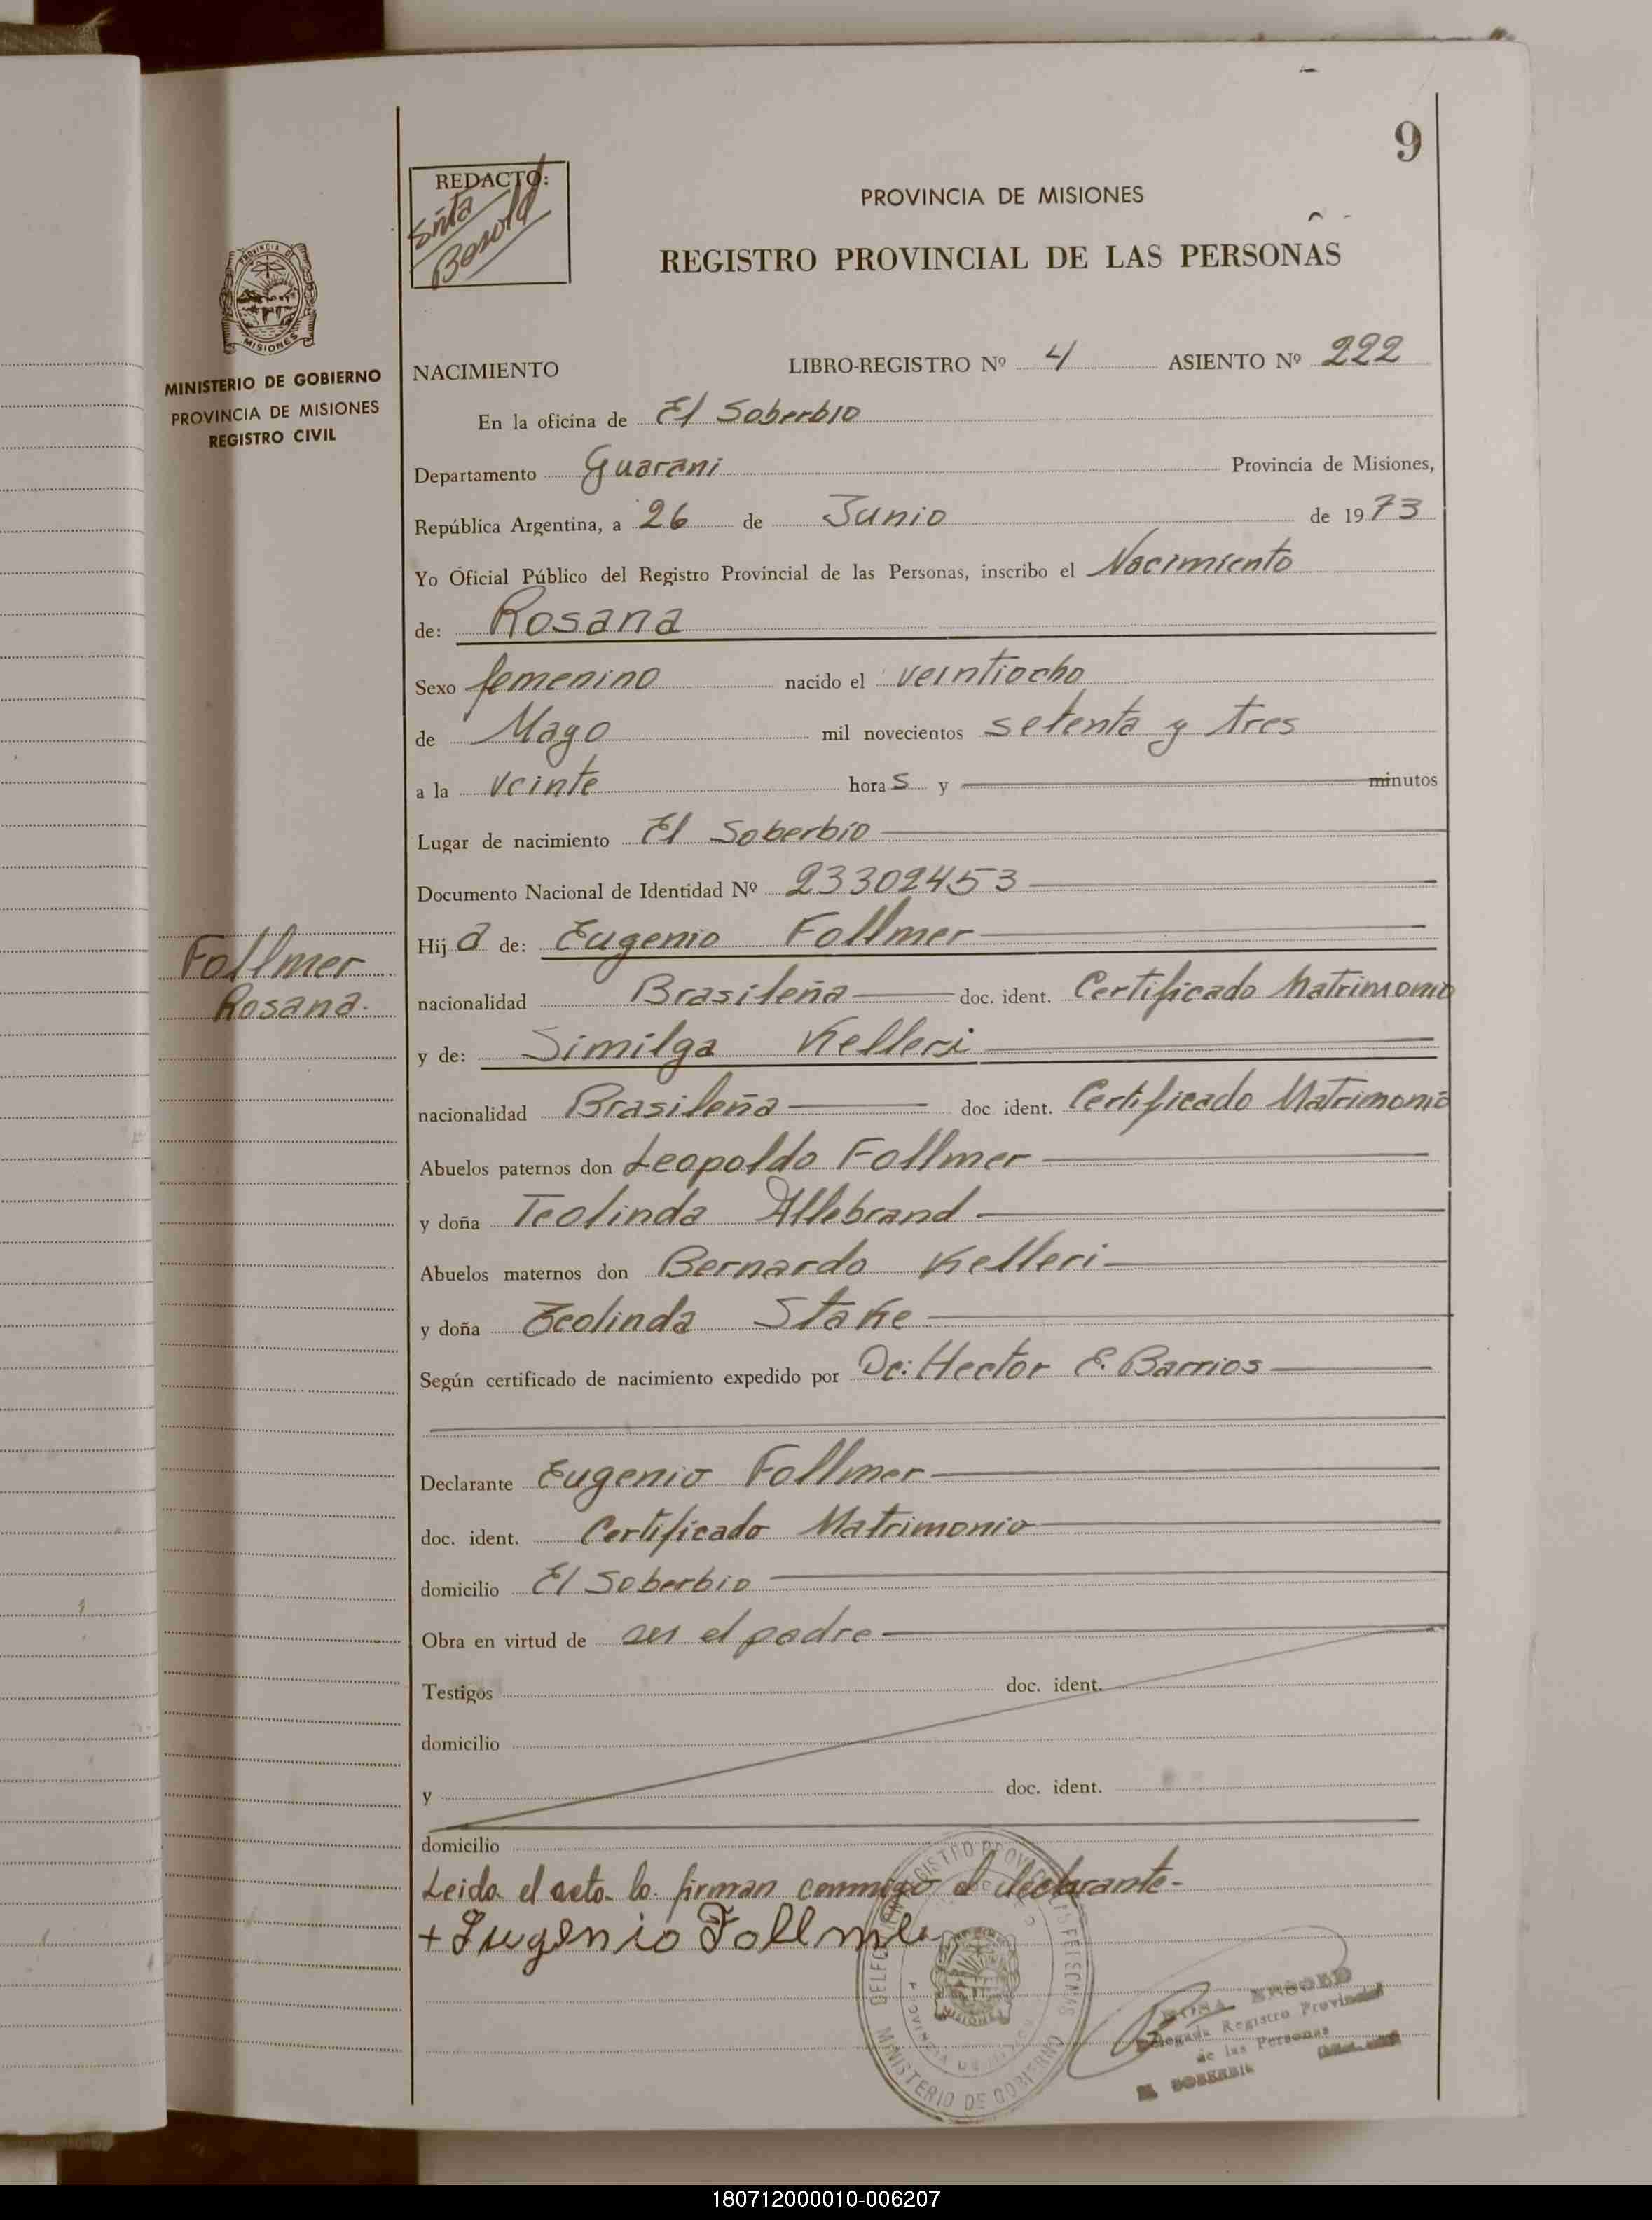 9
REDACTO:
Sñta
PROVINCIA DE MISIONES
REGISTRO PROVINCIAL DE LAS PERSONAS
MISIONES
MINISTERIO DE GOBIERNO
PROVINCIA DE MISIONES
REGISTRO CIVIL
NACIMIENTO LIBRO-REGISTRO Nº 4 ASIENTO Nº 222
En la oficina de El Soberbio
Departamento Guarani Provincia de Misiones,
República Argentina, a 26 de Junio de 1973
Yo Oficial Público del Registro Provincial de las Personas, inscribo el Nacimiento
de: Rosana
Sexo femenino nacido el veintiocho
de Mayo mil novecientos setenta y tres
a la veinte horas y minutos
Lugar de nacimiento El Soberbio
Documento Nacional de Identidad Nº 23302453
Hija de: Eugenio Follmer
Follmer
Rosana.
nacionalidad Brasileña doc. ident. Certificado Matrimonio
y de: Similga Kelleri
nacionalidad Brasileña doc ident. Certificado Matrimonio
Abuelos paternos don Leopoldo Follmer
y doña Teolinda Allebrand
Abuelos maternos don Bernardo Kelleri
y doña Teolinda Stake
Según certificado de nacimiento expedido por Dr: Hector E. Barrios
Declarante Eugenio Follmer
doc. ident. Certificado Matrimonio
domicilio El Soberbio
Obra en virtud de ser el padre
Testigos doc. ident.
domicilio
y doc. ident.
domicilio
Leida el acta lo firman conmigo el declarante-
+ Eugenio Follmer
MINISTERIO DE GOBIERNO
MISIONES
ROSA
Delegada Registro Provincial
de las Personas
EL SOBERBIO
180712000010-006207